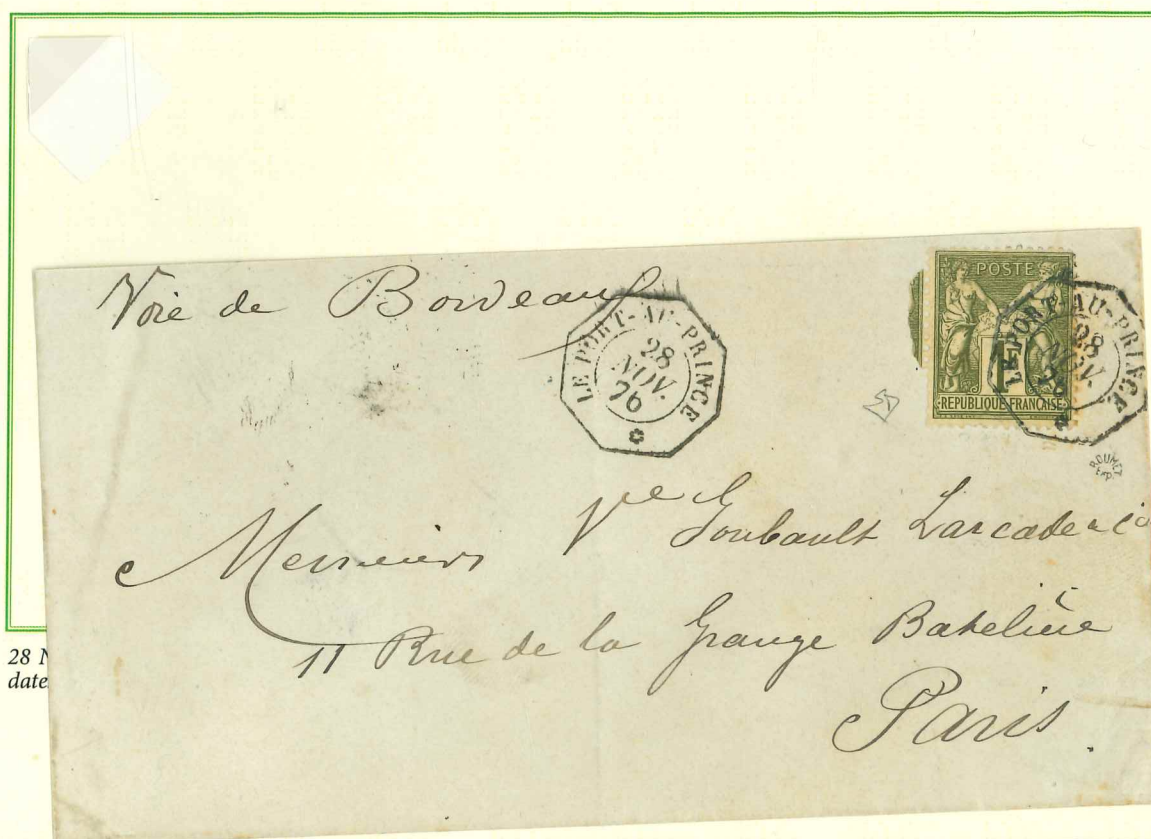 Voie de Bordeaux
LE PORT-AU-PRINCE
28
NOV.
76
POSTE
1
REPUBLIQUE FRANÇAISE
LE PORT-AU-PRINCE
28
NOV.
76
ROUMET
EXP.
Messieurs Ve Goubault Larcade & Cie
11 Rue de la Grange Batelière
Paris
28 N
date